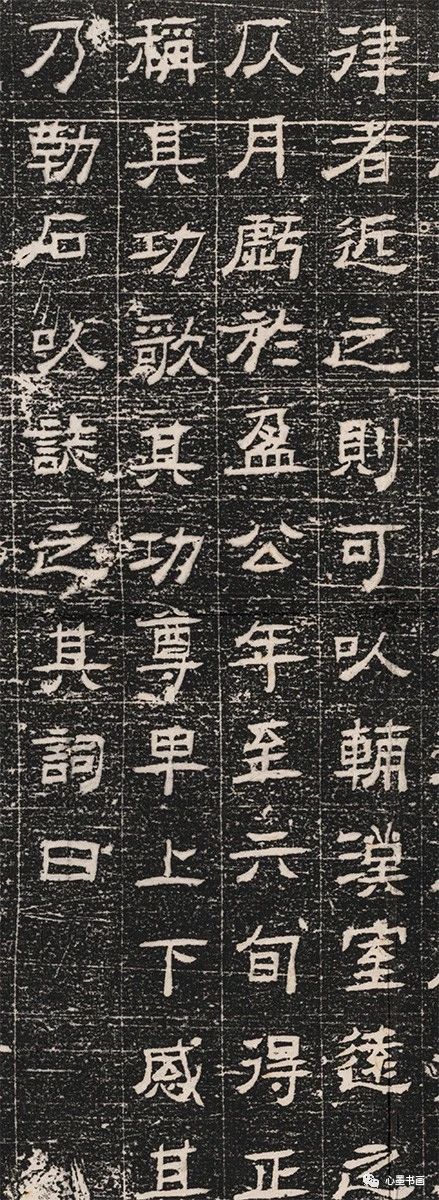 律者近之則可以輔漢室遠之
仄月虧於盈公年至六旬得正
稱其功歌其功尊卑上下感其
乃勒石以誌之其詞曰
心墨书画